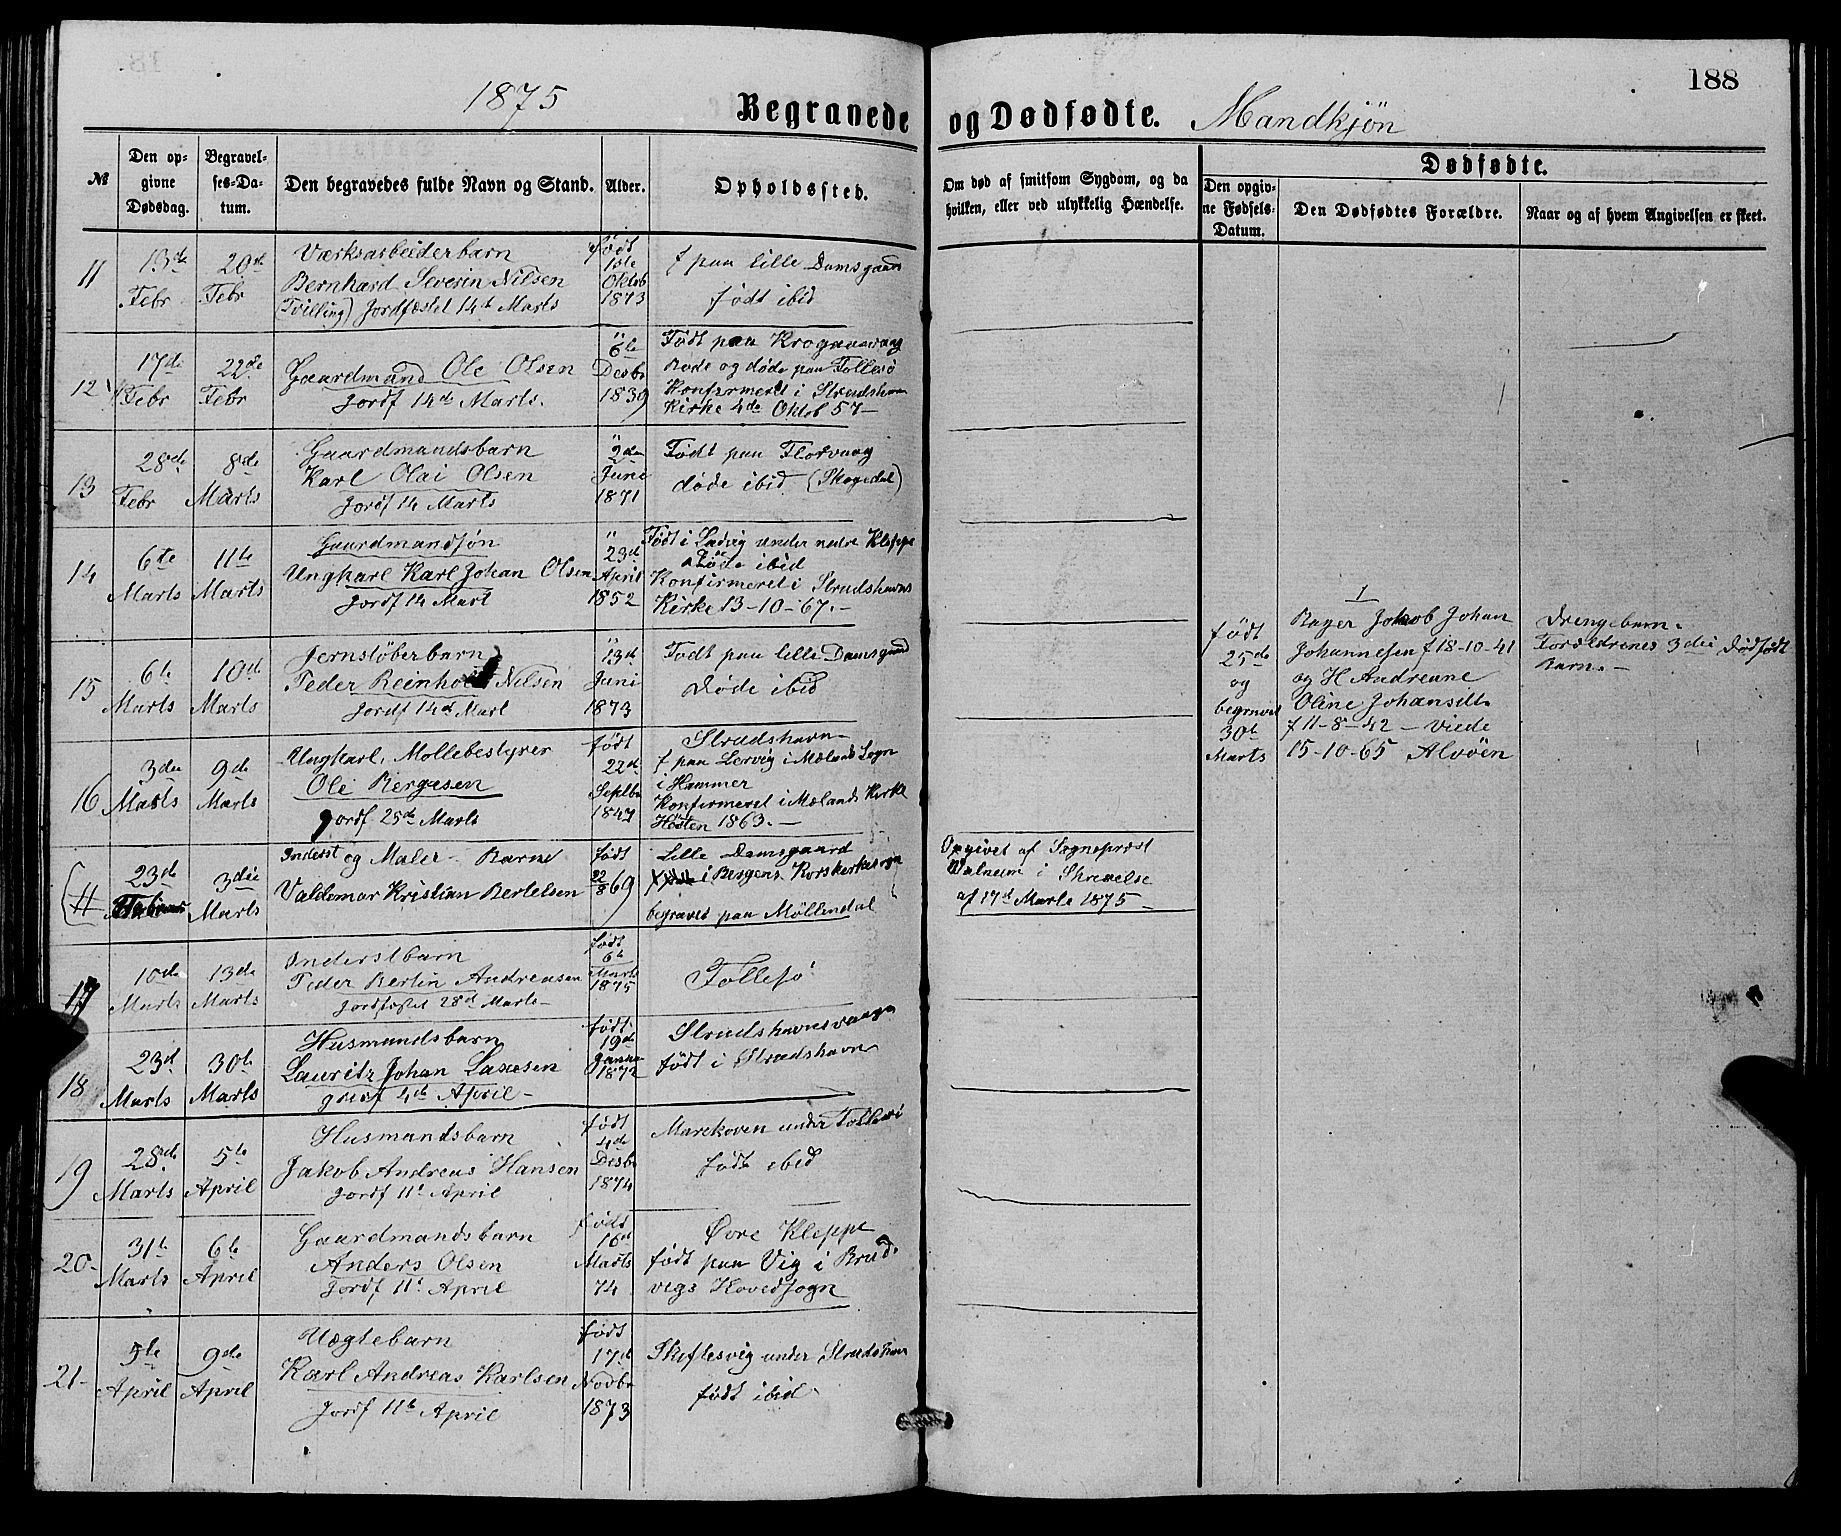 188
1875
Begravede og Dødfødte. Mandkjön
№
Den op-
givne
Dødsdag.
Begravel-
ses-Da-
tum.
Den begravedes fulde Navn og Stand.
Alder.
Opholdssted.
Om død af smitsom Sygdom, og da
hvilken, eller ved ulykkelig Hændelse.
Dødfødte.
Den opgiv-
ne Fødsels-
Datum.
Den Dødfødtes Forældre.
Naar og af hvem Angivelsen er skeet.
11
13de
Febr
20de
Febr
Værksarbeiderbarn
Bernhard Severin Nilsen
(Tvilling) Jordfæstet 14de Marts
født
1ste
Oktob
1873
f paa Lille Damsgaard
født ibid
12
17de
Febr
22de
Febr
Gaardmand Ole Olsen
Jordf 14de Marts.
6te
Desbr
1839
Født paa Krogaasvaag
Boede og døde paa Follesö
Konfirmeret i Strudshavn
Kirke 4de Oktob 57 –
13
28de
Febr
8de
Marts
Gaardmandsbarn
Karl Olai Olsen
Jordf 14 Marts
2den
Juni
1871
Født paa Florvaag
døde ibid (Skogedal)
14
6te
Marts
11te
Marts
Gaardmandsøn
Ungkarl Karl Johan Olsen
Jordf 14 Mart
23d
April
1852
Født i Ladvig under nedre Kleppe
Døde ibid
Konfirmeret i Strudshavns
Kirke 13-10-67. –
15
6te
Marts
10de
Marts
Jernstöberbarn
Peder Reinholdt Nilsen
Jordf 14d Mart
13de
Juni
1873
Født paa lille Damsgaard
Døde ibid
16
3die
Marts
9de
Marts
Ungkarl, Mollebestyrer
Ole Bergesen
Jordf 25de Marts
født
22de
Septbr
1847
Strudshavn
f paa Lervig i Mælands Sogn
i Hammer
Konfirmeret i Mælands Kirke
Hösten 1863. –
(H
23de
3die
Marts
Inderst og Maler - Barne
Valdemar Kristian Bertelsen
født
22/8 69
Lille Damsgaard
i Bergens Korskirkesogn
begravet paa Möllendal
Opgivet af Sogneprest
Walnum i Skrivelse
af 17de Marts 1875 –
17
10de
Marts
13de
Marts
Inderstbarn
Peder Bertin Andreasen
Jordfæstet 28de Marts –
født
6te
Marts
1875
Follesö
18
23d
Marts
30te
Marts
Husmandsbarn
Lauritz Johan Lassesen
Jordf 4de April –
født
19de
Januar
1872
Strudshavnsvaagen
født i Strudshavn
19
28de
Marts
5te
April
Husmandsbarn
Jakob Andreas Hansen
Jordf 11te April
født
4de
Desbr
1874
under Follesö
født ibid
20
31te
Marts
6te
April
Gaardmandsbarn
Anders Olsen
Jordf 11te April
født
16d
Marts
74
Øvre Kleppe
født paa Vig i Brud-
vigs Hovedsogn
21
5te
April
9de
April
Uægtebarn
Karl Andreas Karlsen
Jordf 11te April
født
17d
Novbr
1873
Skiftesvig under Strudshavn
født ibid
født
25de
og
begravet
30te
Marts
1
Bager Jakob Johan
Johannesen f 18-10-41
og H Andreane
Oline Johansdt.
f 11-8-42 – Viede
15-10-65 Alvöen
Drengebarn.
Forældrenes 3die dødfødt
Barn. –